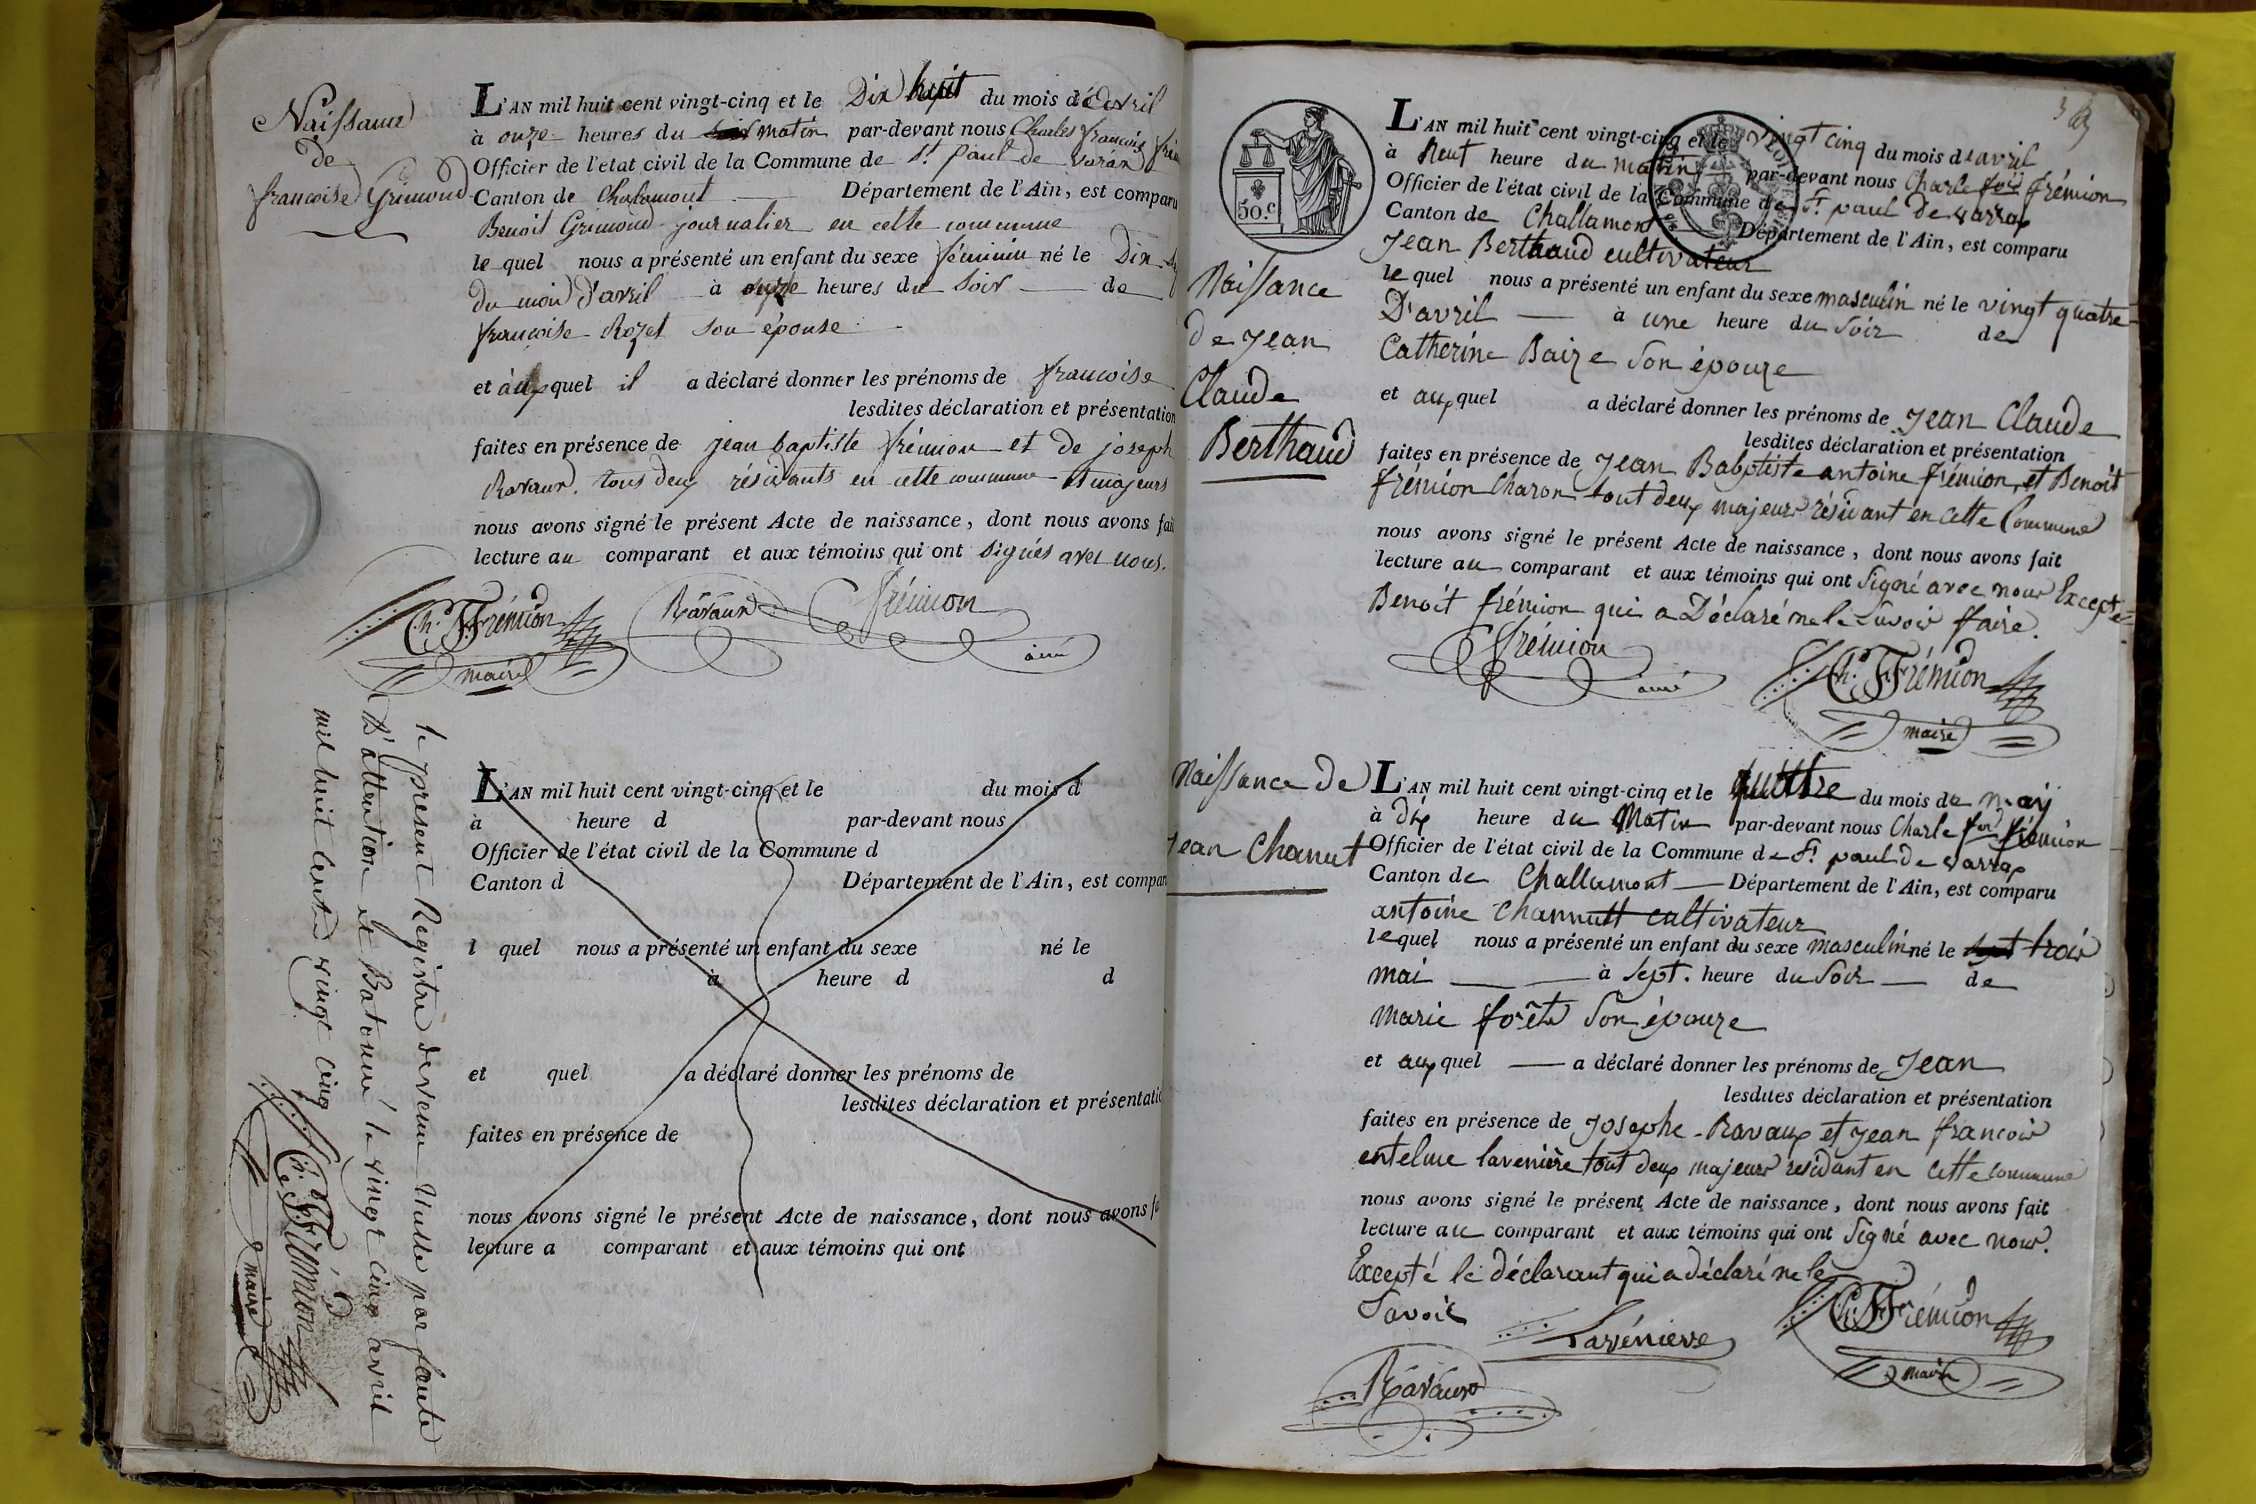 Naissance
de
francoise Grimond
L'AN mil huit cent vingt-cinq et le Dix huit du mois d'avril
à onze heures du matin par-devant nous Charles françois
Officier de l'état civil de la Commune de St paul de varax
Canton de Chalamont Département de l'Ain, est comparu
Benoit Grimond journalier en cette commune
le quel nous a présenté un enfant du sexe féminin né le Dix
du mois d'avril à heures du soir de
francoise Rozet son épouse
et auquel il a déclaré donner les prénoms de francoise
lesdites déclaration et présentation
faites en présence de jean baptiste frémion et de joseph
Ravaux. tous deux résidants en cette commune et majeurs
nous avons signé le présent Acte de naissance, dont nous avons fait
lecture au comparant et aux témoins qui ont signés avec nous.
Ch. F. Frémion Ravaux frémion
maire ainé
L'AN mil huit cent vingt-cinq et le du mois d
à heure d par-devant nous
Officier de l'état civil de la Commune d
Canton d Département de l'Ain, est compar
l quel nous a présenté un enfant du sexe né le
à heure d d
et quel a déclaré donner les prénoms de
lesdites déclaration et présentatio
faites en présence de
nous avons signé le présent Acte de naissance, dont nous avons fa
lecture a comparant et aux témoins qui ont
le présent Registre devenu Nulle par faute
D'attention et Batonné le vingt cinq avril
mil huit cent vingt cinq
Ch. F. Frémion
maire
50.c
Naissance
de Jean
Claude
Berthaud
L'AN mil huit cent vingt-cinq et le vingt cinq du mois d'avril
à Neuf heure du matin par-devant nous Charle fois frémion
Officier de l'état civil de la Commune de St paul de varrax
Canton de Challamont Département de l'Ain, est comparu
Jean Berthaud cultivateur
le quel nous a présenté un enfant du sexe masculin né le vingt quatre
D'avril à une heure du soir de
Catherine Baize son épouze
et auxquel a déclaré donner les prénoms de Jean Claude
lesdites déclaration et présentation
faites en présence de Jean Babptiste antoine frémion et Benoit
frémion charon tout deux majeurs résidant en cette Commune
nous avons signé le présent Acte de naissance, dont nous avons fait
lecture au comparant et aux témoins qui ont signé avec nous Excepté
Benoit frémion qui a Déclaré ne le savoir faire.
frémion Ch. F. Frémion
ainé maire
Naissance de
Jean Chanut
L'AN mil huit cent vingt-cinq et le quattre du mois de may
à dix heure du Matin par-devant nous Charle fois frémion
Officier de l'état civil de la Commune de St paul de varrax
Canton de Challamont Département de l'Ain, est comparu
antoine channutt cultivateur
lequel nous a présenté un enfant du sexe masculin né le sept trois
mai à sept. heure du soir de
Marie forêts son épouze
et auxquel a déclaré donner les prénoms de Jean
lesdites déclaration et présentation
faites en présence de Josephe Ravaux et Jean francois
entelme lavenière tout deux majeurs residant en cette commune
nous avons signé le présent Acte de naissance, dont nous avons fait
lecture au comparant et aux témoins qui ont signé avec nous.
Excepté le déclarant qui a déclaré ne le
savoir
Lavénierre Ch. F. Frémion
Ravaux maire